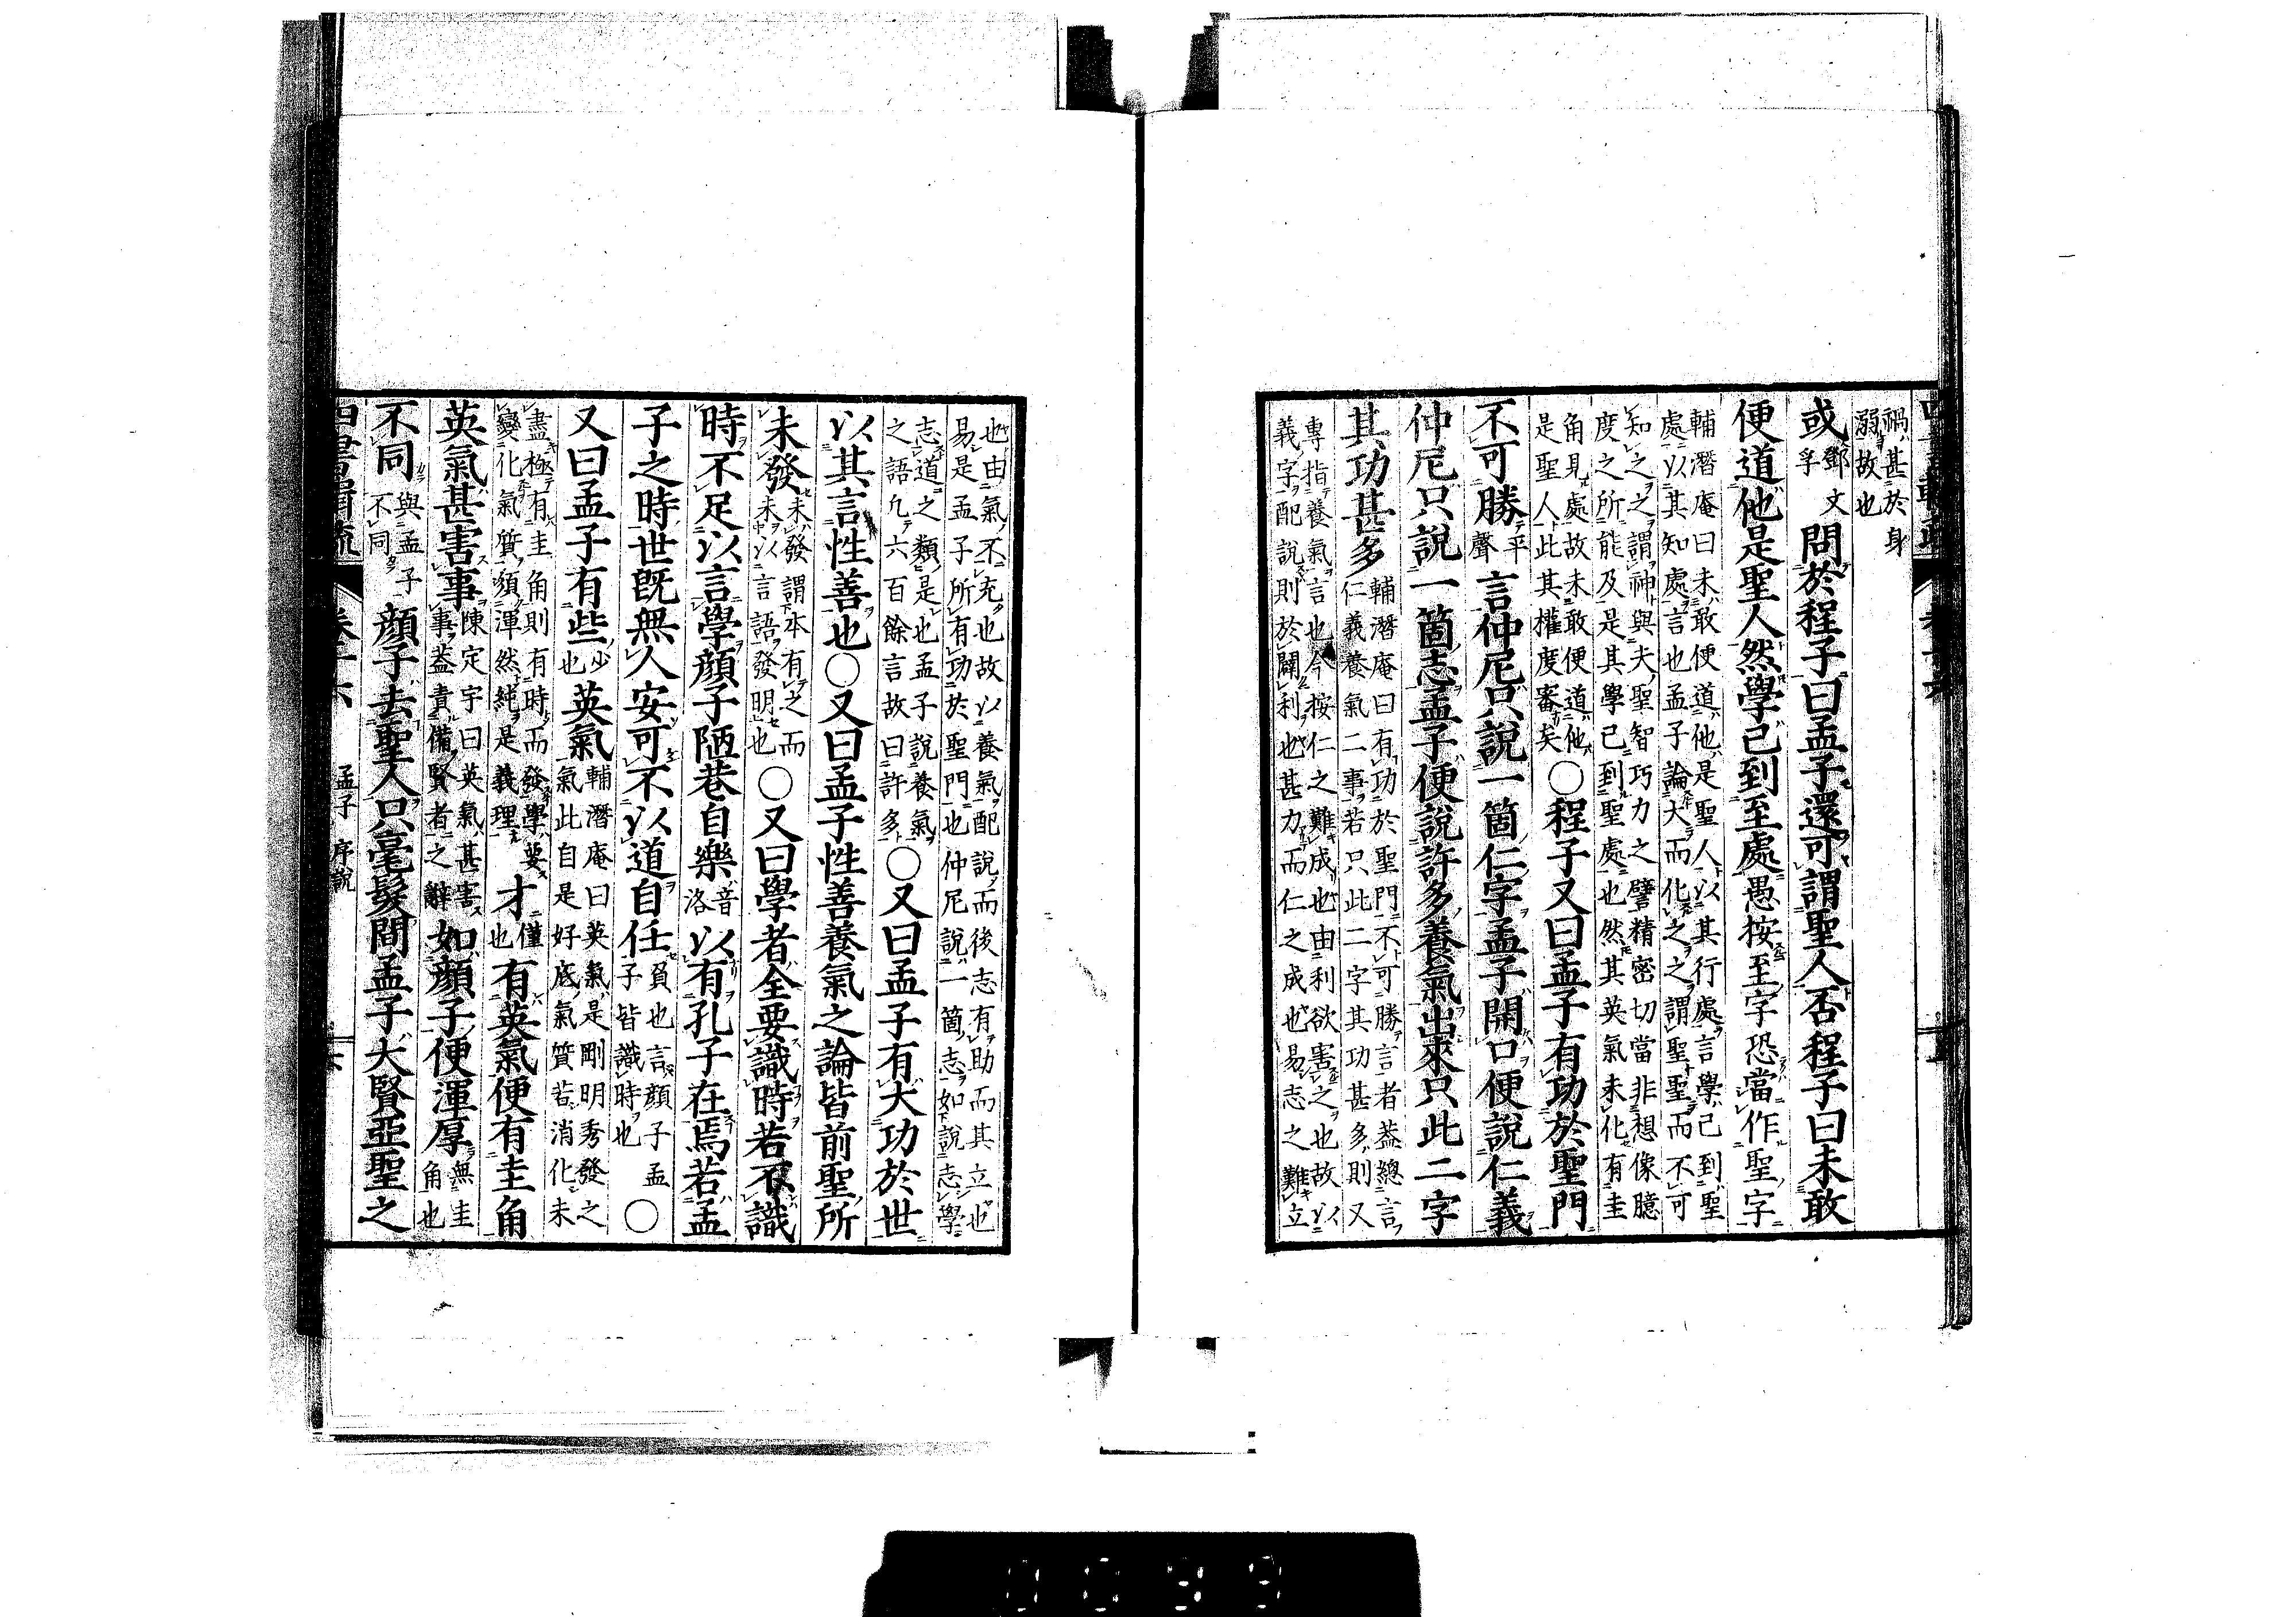 禍甚於身
溺故也
或鄧文孚問於程子曰孟子還可謂聖人否程子曰未敢
便道他是聖人然學已到至處愚按至字恐當作聖字
輔潛庵曰未敢便道他是聖人以其行處言學已到聖
處以其知處言也孟子論大而化之之謂聖聖而不可
知之之謂神與夫聖智巧力之譬精密切當非想像臆
度之所能及是其學已到聖處也然其英氣未化有圭
角見處故未敢便道他
是聖人此其權度審矣○程子又曰孟子有功於聖門
不可勝平聲言仲尼只說一箇仁字孟子開口便說仁義
仲尼只說一箇志孟子便說許多養氣出來只此二字
其功甚多輔潛庵曰有功於聖門不可勝言者蓋總言
仁義養氣二事若只此二字其功甚多則又
專指養氣言也今按仁之難成也由利欲害之也故以
義字配說則於闢利也甚力而仁之成也易志之難立
也由氣不充也故以養氣配說而後志有助而其立也
易是孟子所有功於聖門也仲尼說一箇志如說志學
志道之類是也孟子說養氣
之語凡六百餘言故曰許多○又曰孟子有大功於世
以其言性善也○又曰孟子性善養氣之論皆前聖所
未發未發謂本有之而
未以言語發明也○又曰學者全要識時若不識
時不足以言學顏子陋巷自樂音洛以有孔子在焉若孟
子之時世旣無人安可不以道自任負也言顏子孟
子皆識時也○
又曰孟子有些少也英氣輔潛庵曰英氣是剛明秀發之
氣此自是好底氣質若消化未
盡極有圭角則有時而發學要
變化氣質須渾然純是義理才僅也有英氣便有圭角
英氣甚害事陳定宇曰英氣甚害
事蓋責備賢者之辭如顏子便渾厚無圭
角也
不同與孟子
不同顏子去聖人只毫髮間孟子大賢亞聖之
孟子 序說